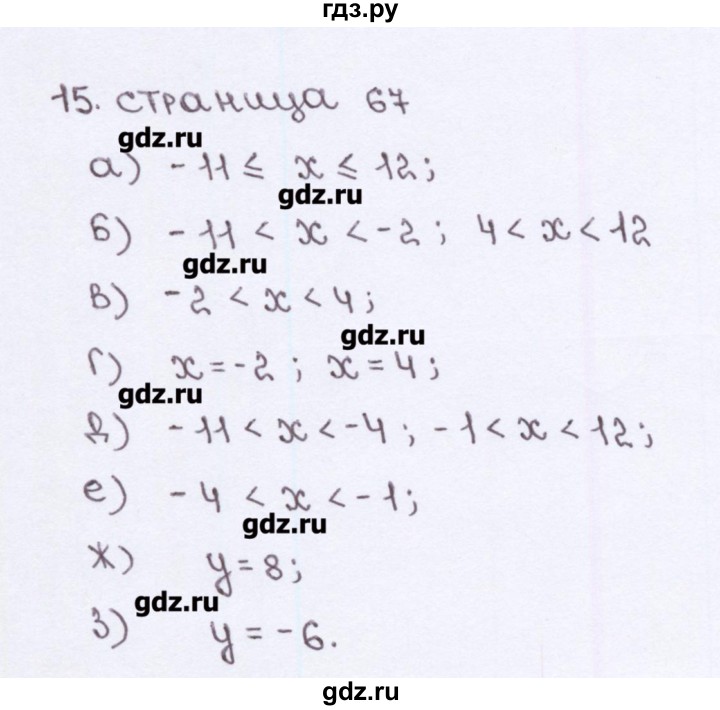 гдз.ру
15. страница 67
gdz.ru
а) -11 ≤ x ≤ 12;
gdz.ru
б) -11 < x < -2; 4 < x < 12
gdz.ru
в) -2 < x < 4;
gdz.ru
г) x = -2; x = 4;
gdz.ru
д) -11 < x < -4; -1 < x < 12;
е) -4 < x < -1;
gdz.ru
ж) y = 8;
gdz.ru
з) y = -6.
gdz.ru